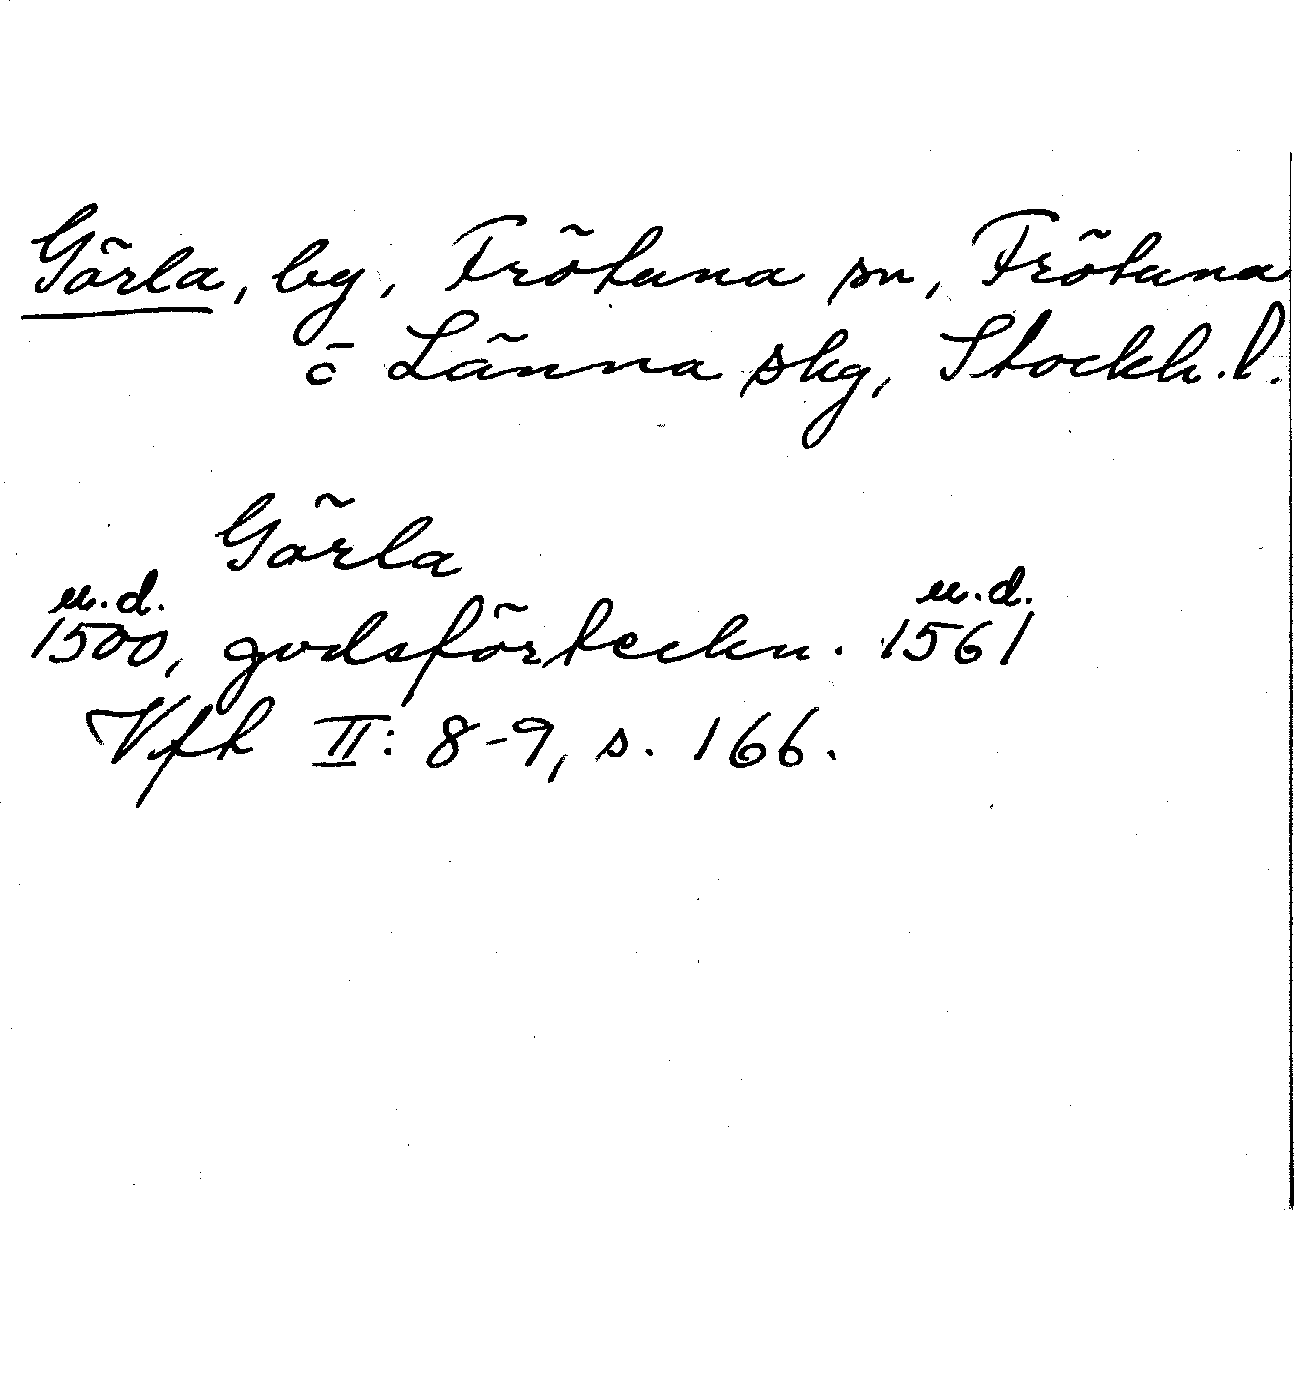 Görla, by, Frötuna sn, Frötuna
o Länna skg, Stockh. l.
Görla
u.d. u.d.
1500, godsförteckn. 1561
Vfh II: 8-9, s. 166.